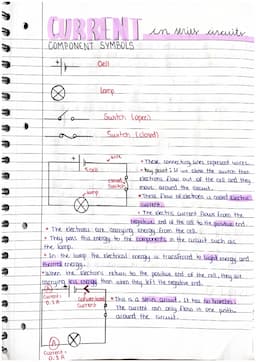 CURRENT in series circuits
COMPONENT SYMBOLS
+ Cell
lamp
Switch (open)
Switch (closed)
+ wire
cell
closed switch
lamp
• These connecting lines represent wires.
• Key point: if we close the switch then
electrons flow out of the cell and they
move around the circuit.
• These flow of electrons is called electric
current.
• The electric current flows from the
negative end of the cell to the positive end.
• The electrons are carrying energy from the cell.
• They pass this energy to the components in the circuit such as
the lamp.
• In the lamp the electrical energy is transferred to light energy and
thermal energy.
• When the electrons return to the positive end of the cell, they are
carrying less energy than when they left the negative end.
A
Current:
0.3 A
+
conventional
current
• This is a series circuit. It has no branches.
The current can only flow in one path
around the circuit.
A
Current:
0.3 A